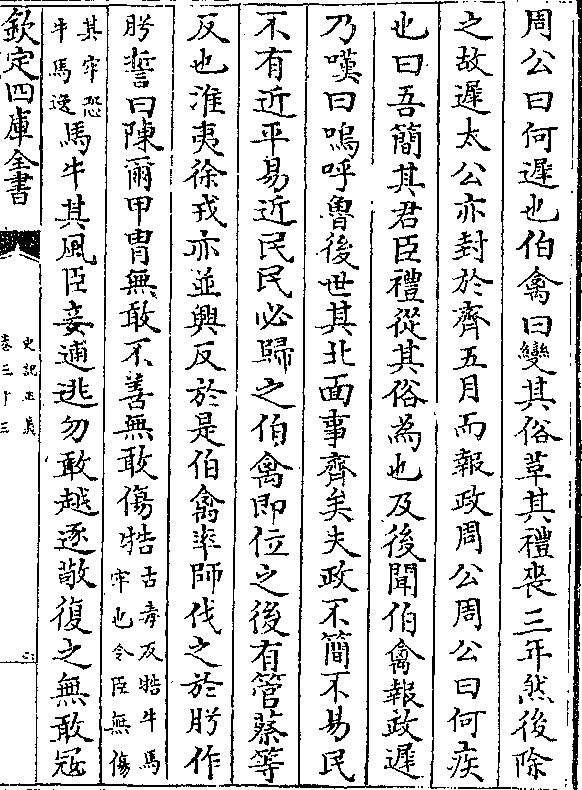 周公曰何遲也伯禽曰變其俗革其禮喪三年然後除
之故遲太公亦封於齊五月而報政周公周公曰何疾
也曰吾簡其君臣禮從其俗為也及後聞伯禽報政遲
乃嘆曰嗚呼魯後世其北面事齊矣夫政不簡不易民
不有近平易近民民必歸之伯禽即位之後有管蔡等
反也淮夷徐戎亦並興反於是伯禽率師伐之於肹作
肹誓曰陳爾甲胄無敢不善無敢傷牿古毒反牿牛馬牢也令臣無傷
其牢恐牛馬逸馬牛其風臣妾逋逃勿敢越逐敬復之無敢寇
欽定四庫全書
史記正義
卷三十三